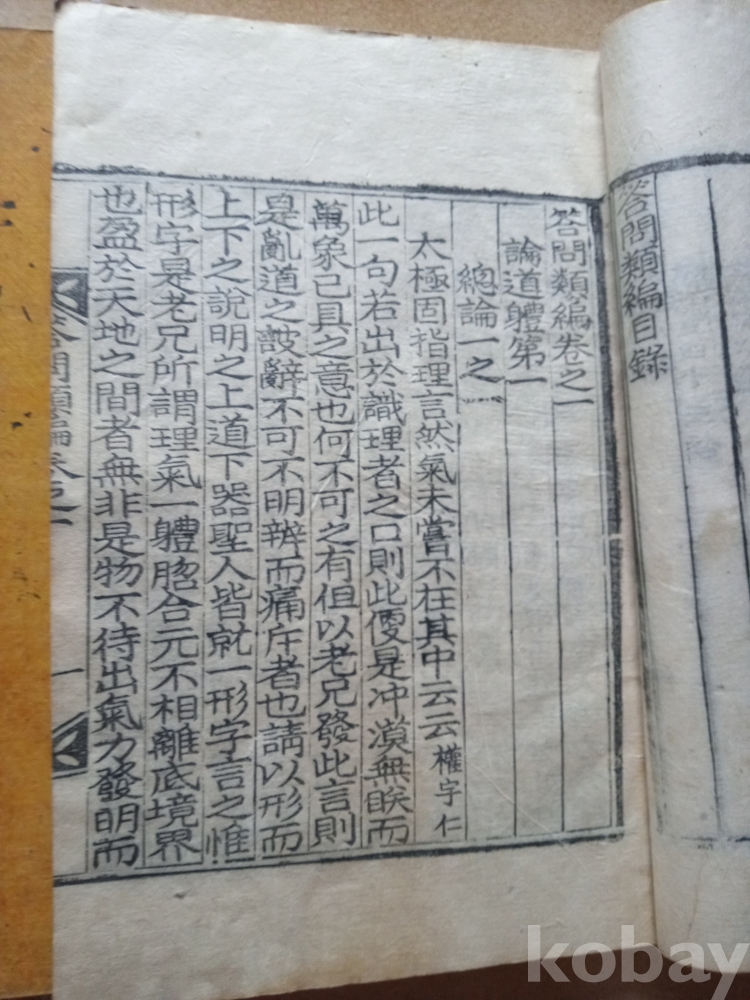 答問類編目錄
答問類編卷之一
論道體第一
總論一之一
太極固指理言然氣未嘗不在其中云云 權宇仁
此一句若出於識理者之口則此便是冲漠無眹而
萬象已具之意也何不可之有但以老兄發此言則
是亂道之詖辭不可不明辨而痛斥者也請以形而
上下之說明之上道下器聖人皆就一形字言之惟
形字是老兄所謂理氣一體脗合元不相離底境界
也盈於天地之間者無非是物不待出氣力發明而
答問類編卷之一
一
kobay